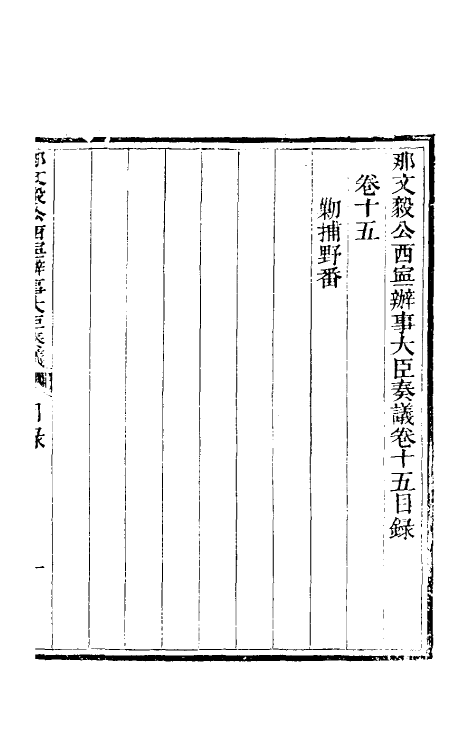 那文毅公西寧辦事大臣奏議卷十五目録
卷十五
勦捕野番
那文毅公西寧辦事大臣奏議
目録
一